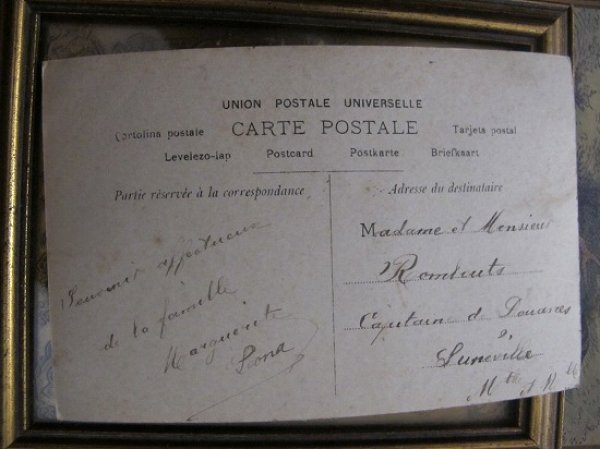 UNION POSTALE UNIVERSELLE
CARTE POSTALE
Cartolina postale
Tarjeta postal
Levelezo-lap Postcard Postkarte Briefkaart
Partie réservée à la correspondance
Adresse du destinataire
Souvenir affectueux
de la famille
Marguerite
Madame et Monsieur
Capitaine de Douanes
à
Luneville